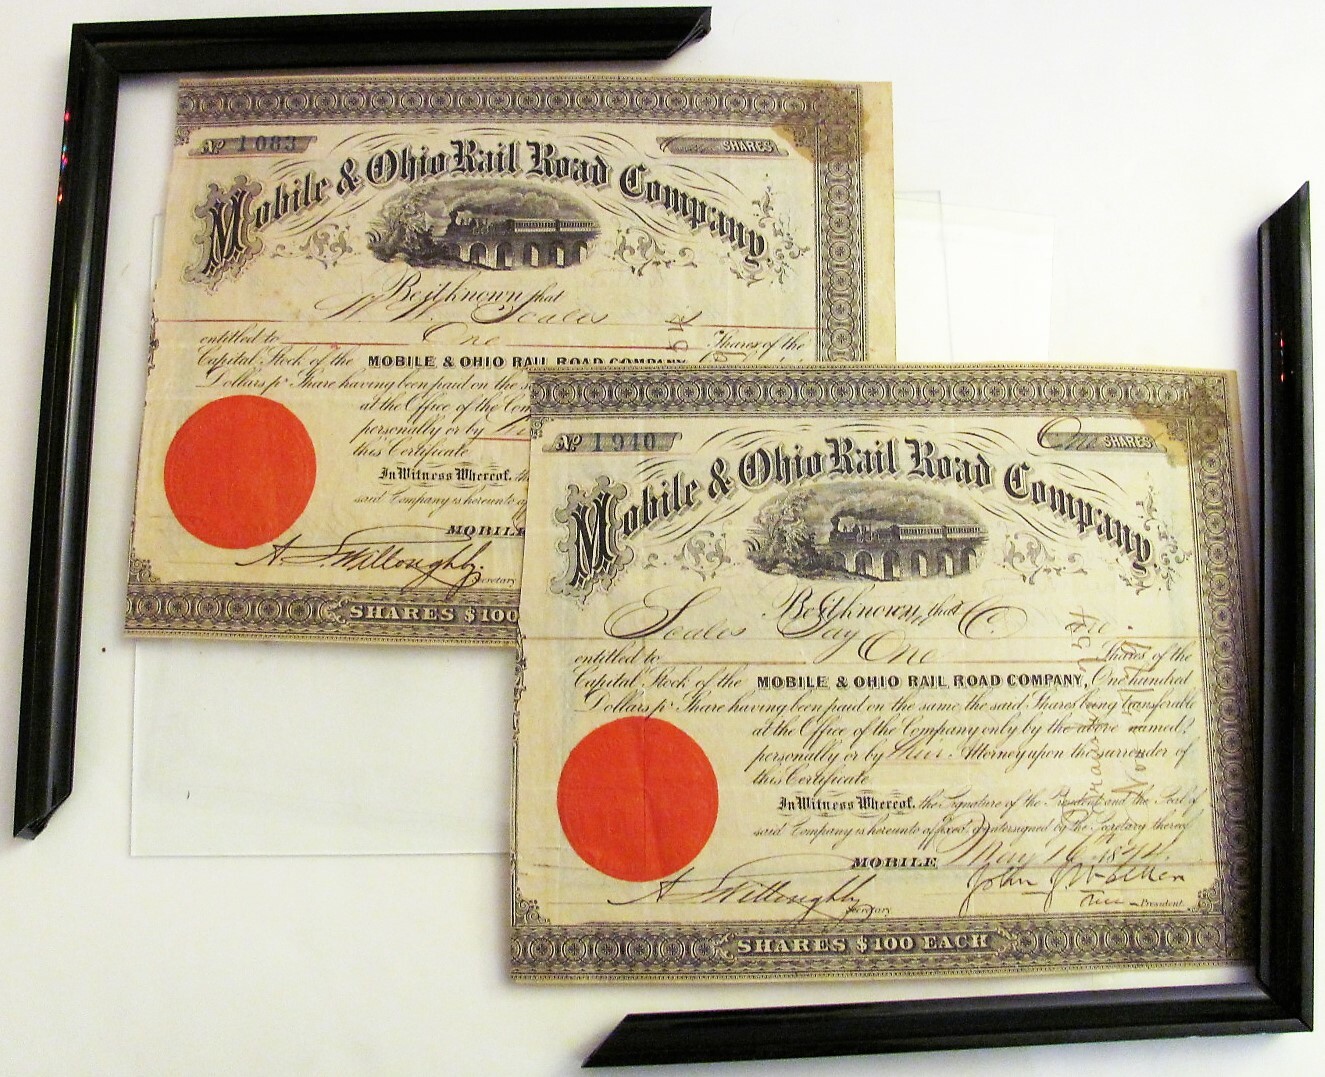 No. 1083
SHARES
Mobile & Ohio Rail Road Company.
Be it known that
W. W. Scales
entitled to One Shares of the
Capital Stock of the MOBILE & OHIO RAIL ROAD COMPANY
Dollars pr Share having been paid on the s
at the Office of the Com
personally or by
this Certificate
In Witness Whereof, th
said Company is hereunto a
MOBILE
A. S. Willoughby.
Secretary
SHARES $100
No. 1940 One SHARES
Mobile & Ohio Rail Road Company.
Be it known, that C.
Scales
entitled to One Shares of the
Capital Stock of the MOBILE & OHIO RAIL ROAD COMPANY, One hundred
Dollars pr Share having been paid on the same, the said Shares being transferable
at the Office of the Company only by the above named,
personally or by their Attorney upon the surrender of
this Certificate
In Witness Whereof, the Signature of the President and the Seal of
said Company is hereunto affixed, countersigned by the Secretary thereof
MOBILE May 16th
A. S. Willoughby
Secretary
John
President.
SHARES $100 EACH